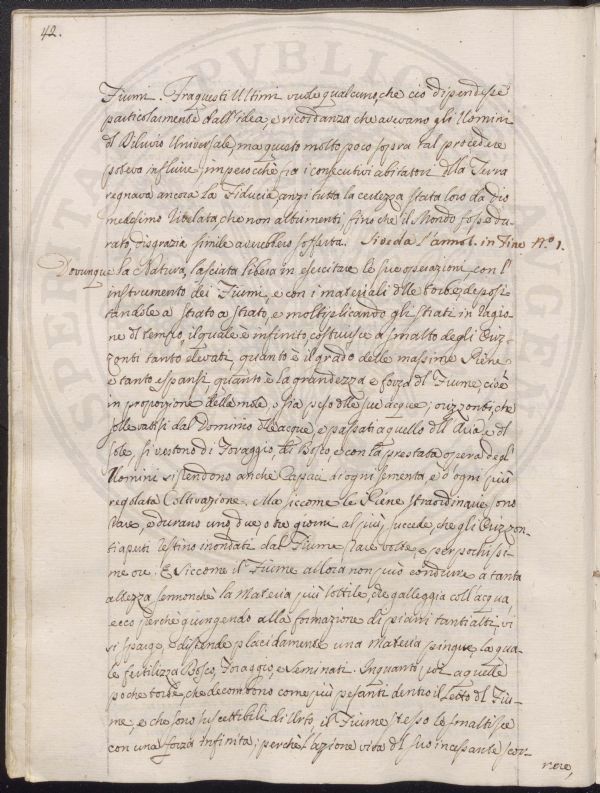 42.
Fiumi. Fra questi Ultimi vude qualcuno, che ciò dipendesse
particolarmente dall'idea, e ricordanza che avevano gli Uomini
dl Diluvio Universale, ma questo molto poco sopra tal procedere
poteva influire; imperocchè fra i consecutivi abitatori dlla Terra
regnava ancora la Fiducia, anzi tutta la certezza stata loro da Dio
medesimo rivelata, che non altrimenti fino che il Mondo fosse du-
rato disgrazia simile averebbero sofferta. Si veda l'annot. in Fine N.º 1.
Dovunque la Natura, lasciata libera in esercitare le sue operazioni, con l'
instrumento dei Fiumi, e con i materiali dlle torbe, deposi-
tandole a strato a strato, e moltiplicando gli strati in ragio-
ne dl tempo, il quale è infinito, costruisce a smalto degli Oriz-
zonti tanto elevati, quanto è il grado delle massime Piene
e tanto espansi, quanto è la grandezza e forza dl Fiume, cioè
in proporzione della mole, o sia peso dlle sue acque; orizzonti, che
sollevatisi dal Dominio dlle acque, e passati a quello dll'Aria e dl
Sole, si vestono di Foraggio, di Bosco, e con la prestata opera degl'
Uomini si rendono anche capaci di ogni sementa, e d'ogni più
regolata Coltivazione. Ma siccome le Piene straordinarie sono
rare, e durano uno, due, o tre giorni al più, succede, che gli Orizzon-
ti aperti restino inondati dal Fiume rare volte, e per pochissi-
me ore. E siccome il Fiume allora non può condurre a tanta
altezza sennonchè la Materia più sottile, che galleggia coll'acqua,
ecco perchè giungendo alla formazione di piani tant'alti, vi
si sparge, e distende placidamente una Materia pingue, la qua-
le fertilizza Bosco, Foraggio, e Seminati. Inquanto poi a quelle
poche torbe, che decombono come più pesanti dentro il Letto dl Fiu-
me, e che sono suscettibili di Urto, il Fiume stesso le smaltisce
con una forza infinita; perchè l'azione viva dl suo incessante scor-
rere,